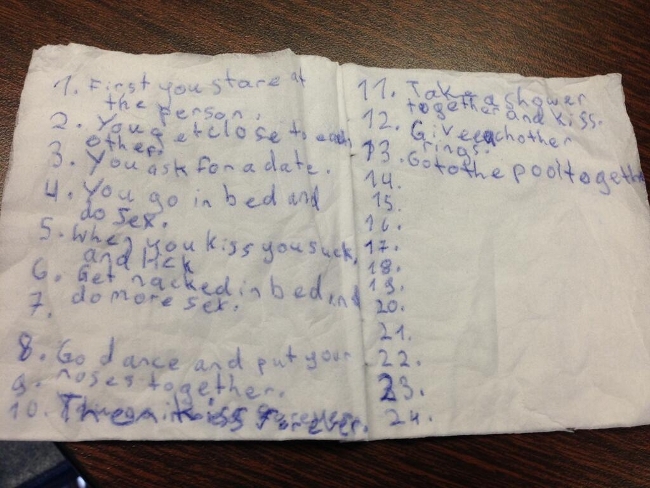 1. First you stare at
the person.
2. You get close to each
other.
3. You ask for a date.
4. You go in bed and
do sex.
5. When you kiss you suck
and lick
6. Get nacked in bed and
7. do more sex.
8. Go dance and put your
9. noses together.
10. kiss forever.
11. Take a shower
together and kiss.
12. Give eachother
rings.
13. Go to the pool together
14.
15.
16.
17.
18.
19.
20.
21.
22.
23.
24.